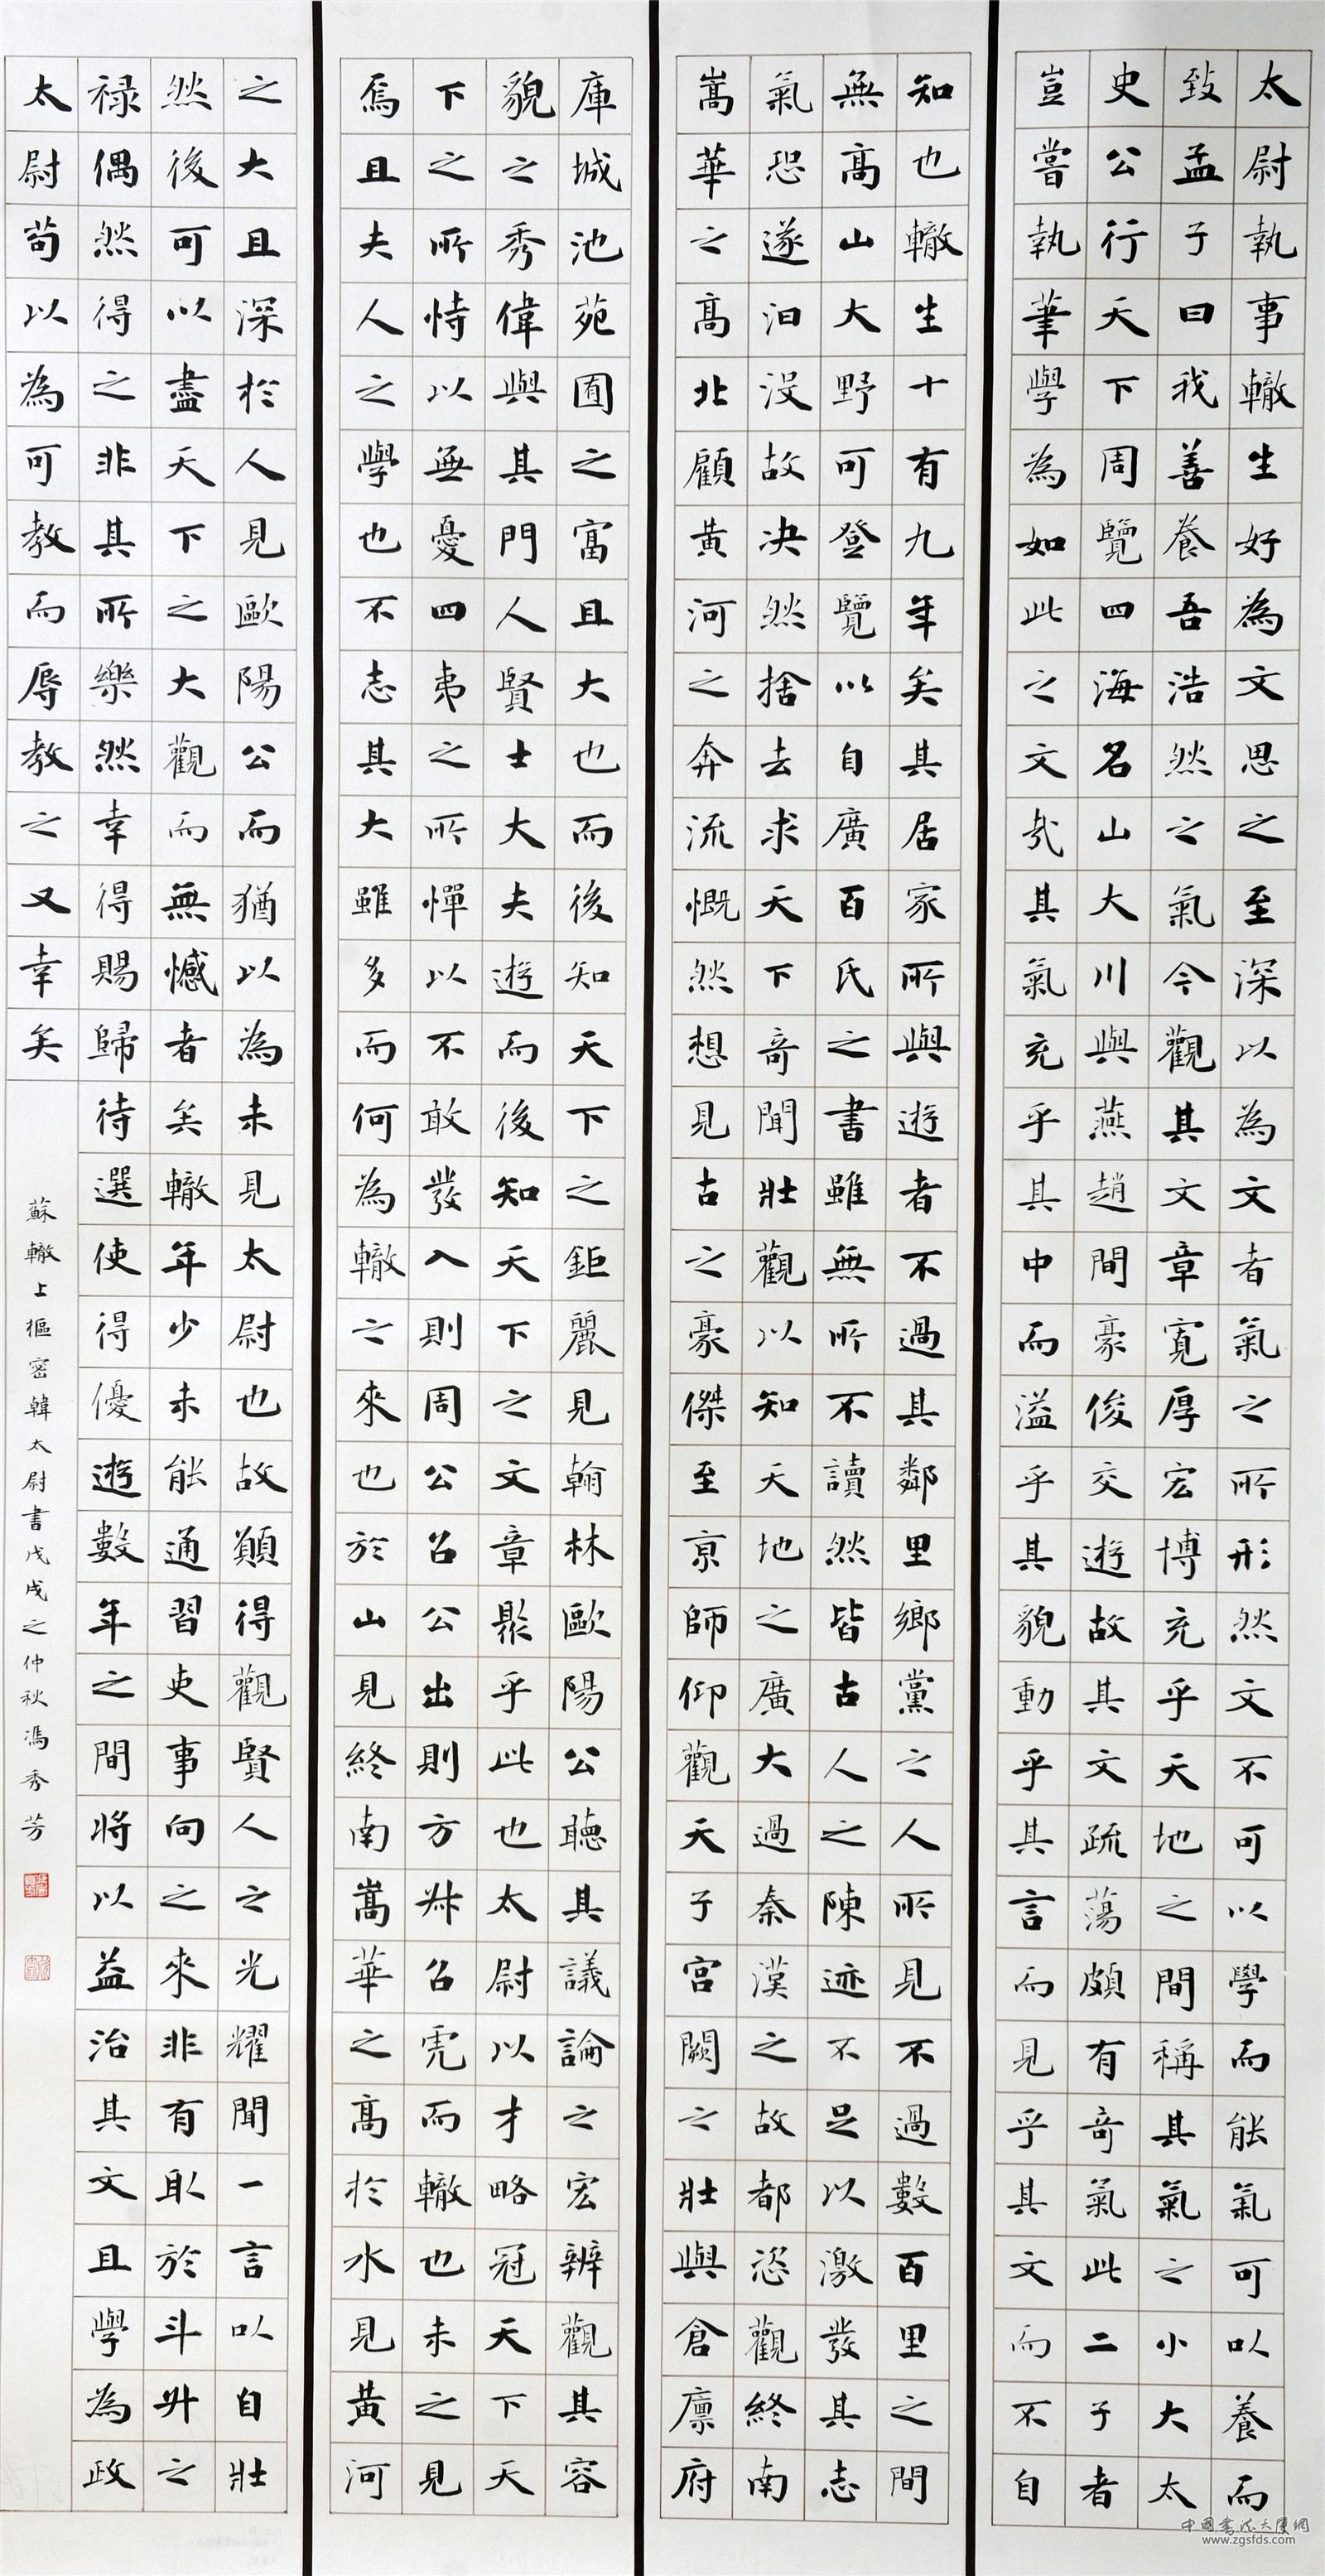 太尉執事轍生好為文思之至深以為文者氣之所形然文不可以學而能氣可以養而
致孟子曰我善養吾浩然之氣今觀其文章寬厚宏博充乎天地之間稱其氣之小大太
史公行天下周覽四海名山大川與燕趙間豪俊交遊故其文疏蕩頗有奇氣此二子者
豈嘗執筆學為如此之文哉其氣充乎其中而溢乎其貌動乎其言而見乎其文而不自
知也轍生十有九年矣其居家所與遊者不過其鄰里鄉黨之人所見不過數百里之間
無高山大野可登覽以自廣百氏之書雖無所不讀然皆古人之陳迹不足以激發其志
氣恐遂汩沒故決然捨去求天下奇聞壯觀以知天地之廣大過秦漢之故都恣觀終南
嵩華之高北顧黃河之奔流慨然想見古之豪傑至京師仰觀天子宮闕之壯與倉廩府
庫城池苑囿之富且大也而後知天下之鉅麗見翰林歐陽公聽其議論之宏辨觀其容
貌之秀偉與其門人賢士大夫遊而後知天下之文章聚乎此也太尉以才略冠天下天
下之所恃以無憂四夷之所憚以不敢發入則周公召公出則方叔召虎而轍也未之見
焉且夫人之學也不志其大雖多而何為轍之來也於山見終南嵩華之高於水見黃河
之大且深於人見歐陽公而猶以為未見太尉也故願得觀賢人之光耀聞一言以自壯
然後可以盡天下之大觀而無憾者矣轍年少未能通習吏事向之來非有取於斗升之
祿偶然得之非其所樂然幸得賜歸待選使得優遊數年之間將以益治其文且學為政
太尉苟以為可教而辱教之又幸矣
蘇轍上樞密韓太尉書戊戌之仲秋馮秀芳
中國書法大廈網
www.zgsfds.com